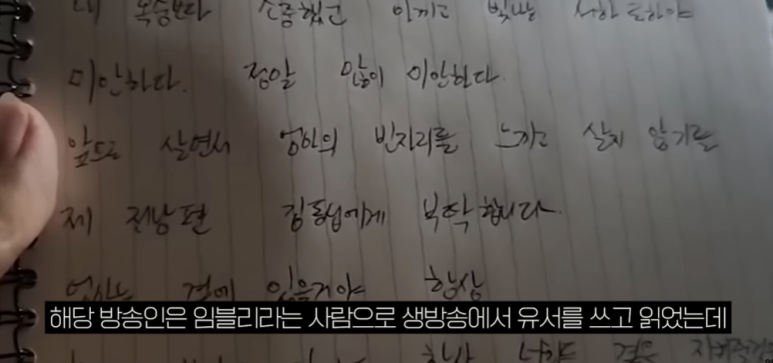 내 목숨보다 소중했고 아끼고 빛났 서하 로하야
미안하다. 정말 많이 미안하다.
앞으로 살면서 엄마의 빈자리를 느끼고 살지 않기를
제 전남편 김동섭에게 부탁합니다.
엄마는 곁에 있을거야 항상
해당 방송인은 임블리라는 사람으로 생방송에서 유서를 쓰고 읽었는데
항상